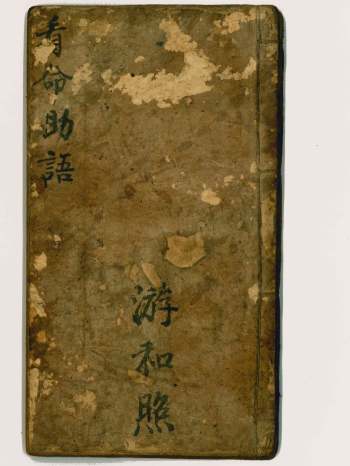 看命助語
游和照